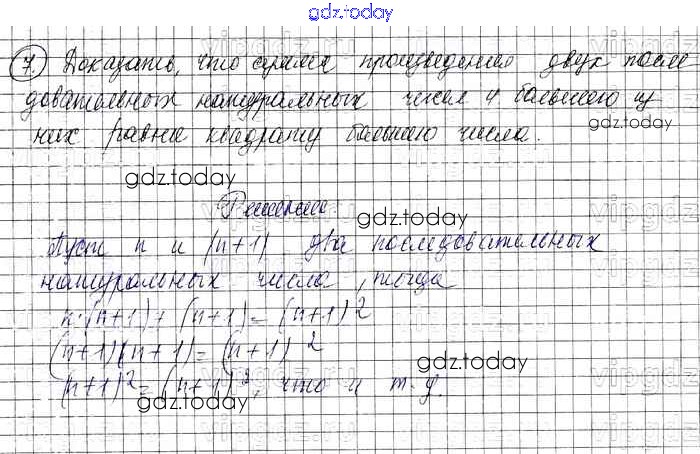 gdz.today
7. Доказать, что сумма произведения двух после
довательных натуральных чисел и большего из
них равна квадрату большего числа.
gdz.today
gdz.today
Решение.
gdz.today
Пусть n и (n+1) два последовательных
натуральных числа, тогда
n·(n+1)+(n+1)=(n+1)2
(n+1)(n+1)=(n+1)2
gdz.today
(n+1)2=(n+1)2, что и т.д.
gdz.today